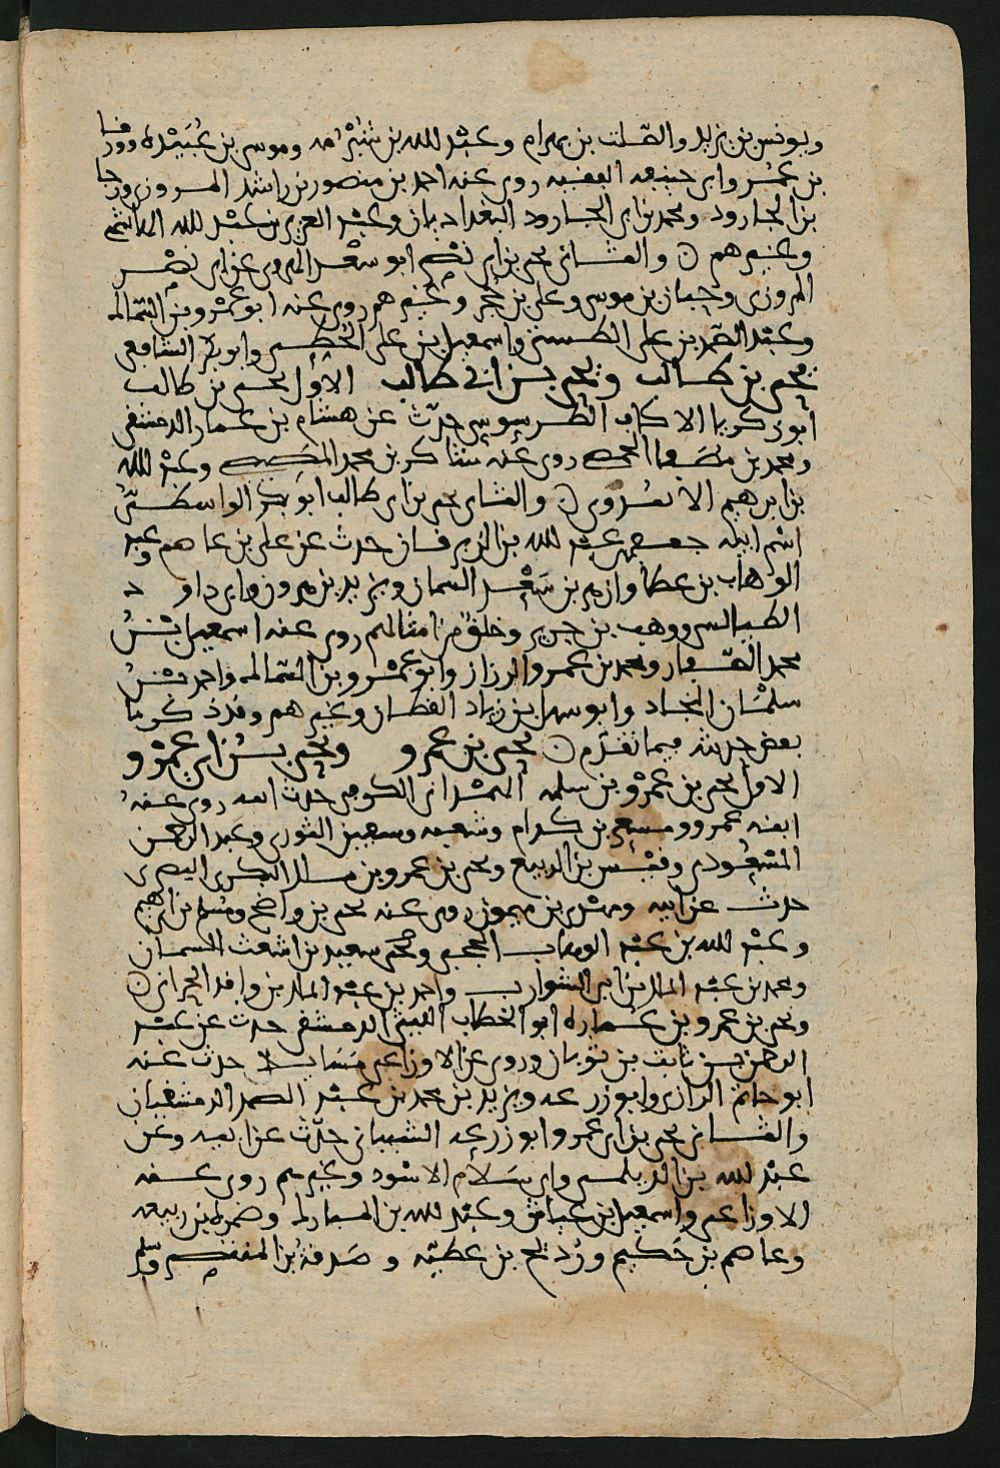 ويونس بن يزيد والصلت بن بهرام وعبد الله بن شبرمه وموسى بن عبيدة وورقا
بن عمر وابى حنيفه الفقيه روى عنه احمد بن منصور بن راشد المروزى ورجا
بن الجارود ومحمد بن ابى الجارود البغداديان وعبد العزيز بن عبد الله الهاشمى
وغيرهم والثانى يحيى بن ابى نصر ابو سعد الهروى عن ابى نصر
المروزى وحبان بن موسى وعلى بن حجر وغيرهم روى عنه ابو عمرو بن السماك
وعبد الصمد بن على الطستى واسمعيل بن على الخطبى وابو بكر الشافعى
يحيى بن طالب ويحيى بن ابى طالب الاول يحيى بن طالب
ابو زكريا الاكاف الطرسوسى حدث عن هشام بن عمار الدمشقى
ومحمد بن مصفا الحمصى روى عنه شاكر بن محمد المصيصى وعبد الله
بن ابرهيم الابندونى والثانى يحيى بن ابى طالب ابو بكر الواسطى
اسم ابيه جعفر بن عبد الله بن الزبرقان حدث عن على بن عاصم وعبد
الوهاب بن عطا وازهر بن سعد السمان ويزيد بن هرون وابى داود
الطيالسى ووهب بن جرير وخلق من امثالهم روى عنه اسمعيل بن
محمد الصفار ومحمد بن عمرو الرزاز وابو عمرو بن السماك واحمد بن
سلمان النجاد وابو سهل بن زياد القطان وغيرهم وقد ذكرنا
بعض حديثه فيما تقدم يحيى بن عمرو ويحيى بن ابى عمرو
الاول يحيى بن عمرو بن سلمه الهمدانى الكوفى حدث عن ابيه روى عنه
ابنه عمرو ومسعر بن كدام وشعبه وسفين الثورى وعبد الرحمن
المسعودى وقيس بن الربيع ويحيى بن عمرو بن مالك النكرى البصرى
حدث عن ابيه روى عنه يحيى بن واضح ومسلم بن ابرهيم
وعبد الله بن عبد الوهاب الحجبى وسعيد بن اشعث السمان
ومحمد بن عبد الملك بن ابى الشوارب واحمد بن عبد الملك بن واقد الحرانى
ويحيى بن عمرو بن عماره ابو الخطاب الليثى الدمشقى حدث عن عبد
الرحمن بن ثابت بن ثوبان وروى عن الاوزاعى مسايل حدث عنه
ابو حاتم الرازى وابو زرعه ويزيد بن محمد بن عبد الصمد الدمشقيان
والثانى يحيى بن ابى عمرو ابو زرعه الشيبانى حدث عن ابيه وعن
عبد الله بن الديلمى وابى سلام الاسود وغيرهم روى عنه
الاوزاعى واسمعيل بن عياش وعبد الله بن المبارك وضمره بن ربيعه
وعاصم بن حكيم ورديح بن عطيه وصدقة بن المنتصر